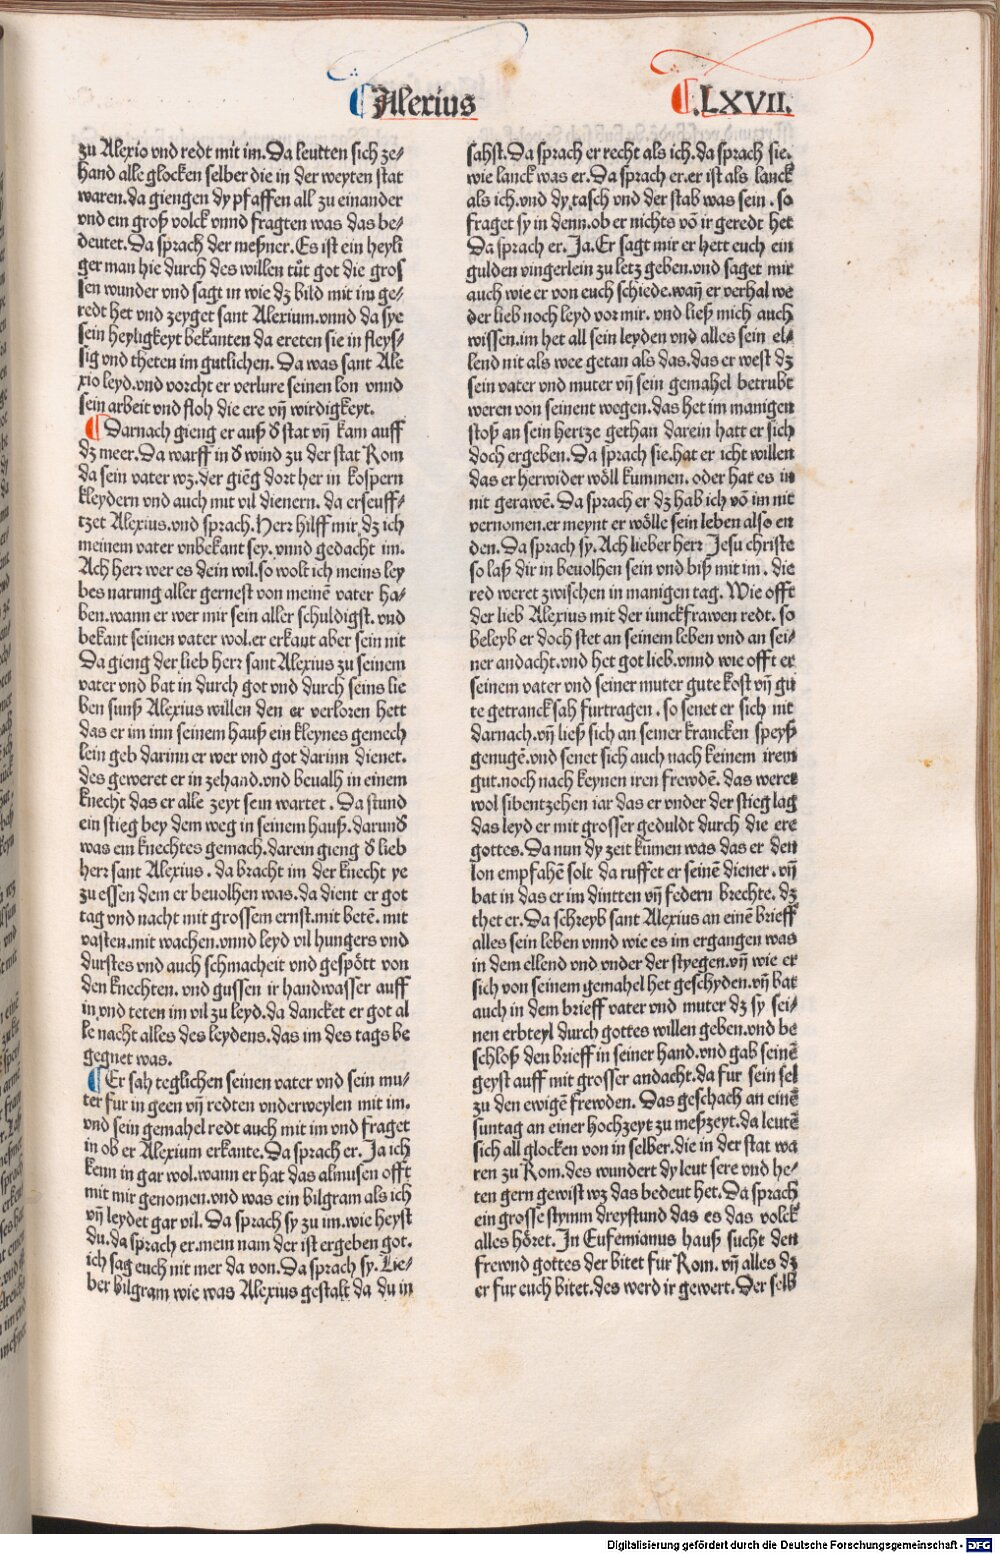 Alexius
.LXVII.
zu Alexio vnd redt mit im. Da leutten sich ze-
hand alle glocken selber die in der weyten stat
waren. da giengen dy pfaffen all zu einander
vnd ein groß volck vnnd fragten was das be-
deutet. Da sprach der meßner. Es ist ein heyli
ger man hie durch des willen tůt got die gros
sen wunder vnd sagt in wie dz bild mit im ge-
redt het vnd zeyget sant Alexium. vnnd da sye
sein heyligkeyt bekanten da ereten sie in fleys-
sig vnd theten im gutlichen. Da was sant Ale
xio leyd. vnd vorcht er verlure seinen lon vnnd
sein arbeit vnd floh die ere vñ wirdigkeyt.
Darnach gieng er auß ď stat vñ kam auff
dz meer. Da warff in ď wind zu der stat Rom
da sein vater wz. der giēg dort her in kospern
kleydern vnd auch mit vil dienern. da erseuff-
tzet Alexius. vnd sprach. Herr hilff mir dz ich
meinem vater vnbekant sey. vnnd gedacht im.
Ach herr wer es dein wil. so wolt ich meins ley
bes narung aller gernest von meinē vater ha-
ben. wann er wer mir sein aller schuldigst. vnd
bekant seinen vater wol. er erkant aber sein nit
Da gieng der lieb herr sant Alexius zu seinem
vater vnd bat in durch got vnd durch seins lie
ben sunß Alexius willen den er verloren hett
das er im inn seinem hauß ein kleynes gemech
lein geb darinn er wer vnd got darinn dienet.
des geweret er in zehand. vnd beualh in einem
knecht das er alle zeyt sein wartet. Da stund
ein stieg bey dem weg in seinem hauß. darunď
was ein knechtes gemach. darein gieng ď lieb
herr sant Alexius. da bracht im der knecht ye
zu essen dem er beuolhen was. da dient er got
tag vnd nacht mit grossem ernst. mit betē. mit
vasten. mit wachen. vnnd leyd vil hungers vnd
durstes vnd auch schmacheit vnd gespött von
den knechten. vnd gussen ir handwasser auff
in vnd teten im vil zu leyd. da dancket er got al
le nacht alles des leydens. das im des tags be
gegnet was.
Er sah teglichen seinen vater vnd sein mu-
ter fur in geen vñ redten vnderweylen mit im.
vnd sein gemahel redt auch mit im vnd fraget
in ob er Alexium erkante. Da sprach er. Ja ich
kenn in gar wol. wann er hat das almusen offt
mit mir genomen. vnd was ein bilgram als ich
vñ leydet gar vil. Da sprach sy zu im. wie heyst
du. da sprach er. mein nam der ist ergeben got.
ich sag euch nit mer da von. Da sprach sy. Lie-
ber bilgram wie was Alexius gestalt da du in
sahst. Da sprach er recht als ich. da sprach sie.
wie lanck was er. Da sprach er. er ist als lanck
als ich. vnd dy tasch vnd der stab was sein. so
fraget sy in denn. ob er nichts vō ir geredt het
Da sprach er. Ja. Er sagt mir er hett euch ein
gulden vingerlein zu letz geben. vnd saget mir
auch wie er von euch schiede. wañ er verhal we
der lieb noch leyd vor mir. vnd ließ mich auch
wissen. im het all sein leyden vnd alles sein el-
lend nit als wee getan als das. das er west dz
sein vater vnd muter vñ sein gemahel betrubt
weren von seinent wegen. das het im manigen
stoß an sein hertze gethan darein hatt er sich
doch ergeben. Da sprach sie. hat er icht willen
das er herwider wöll kummen. oder hat es in
nit gerawē. Da sprach er dz hab ich vō im nit
vernomen. er meynt er wölle sein leben also en
den. Da sprach sy. Ach lieber herr Jesu christe
so laß dir in beuolhen sein vnd biß mit im. die
red weret zwischen in manigen tag. Wie offt
der lieb Alexius mit der iunckfrawen redt. so
beleyb er doch stet an seinem leben vnd an sei-
ner andacht. vnd het got lieb. vnnd wie offt er
seinem vater vnd seiner muter gute kost vñ gu
te getranck sah furtragen. so senet er sich nit
darnach. vñ ließ sich an seiner krancken speyß
genugē. vnd senet sich auch nach keinem irem
gut. noch nach keynen iren frewdē. das weret
wol sibentzehen iar das er vnder der stieg lag
das leyd er mit grosser geduldt durch die ere
gottes. Da nun dy zeit kūmen was das er den
lon empfahen solt da ruffet er seinē diener. vñ
bat in das er im dintten vñ federn brechte. dz
thet er. Da schreyb sant Alexius an einē brieff
alles sein leben vnnd wie es im ergangen was
in dem ellend vnd vnder der styegen. vñ wie er
sich von seinem gemahel het geschyden. vñ bat
auch in dem brieff vater vnd muter dz sy sei-
nen erbteyl durch gottes willen geben. vnd be
schloß den brieff in seiner hand. vnd gab seinē
geyst auff mit grosser andacht. da fur sein sel
zu den ewigē frewden. Das geschach an einē
suntag an einer hochzeyt zu meßzeyt. da leutē
sich all glocken von in selber. die in der stat wa
ren zu Rom. des wundert dy leut sere vnd he-
ten gern gewist wz das bedeut het. Da sprach
ein grosse stymm dreystund das es das volck
alles höret. In Eufemianus hauß sucht den
frewnd gottes der bitet fur Rom. vñ alles dz
er fur euch bitet. des werd ir gewert. Der selb
Digitalisierung gefördert durch die Deutsche Forschungsgemeinschaft - DFG